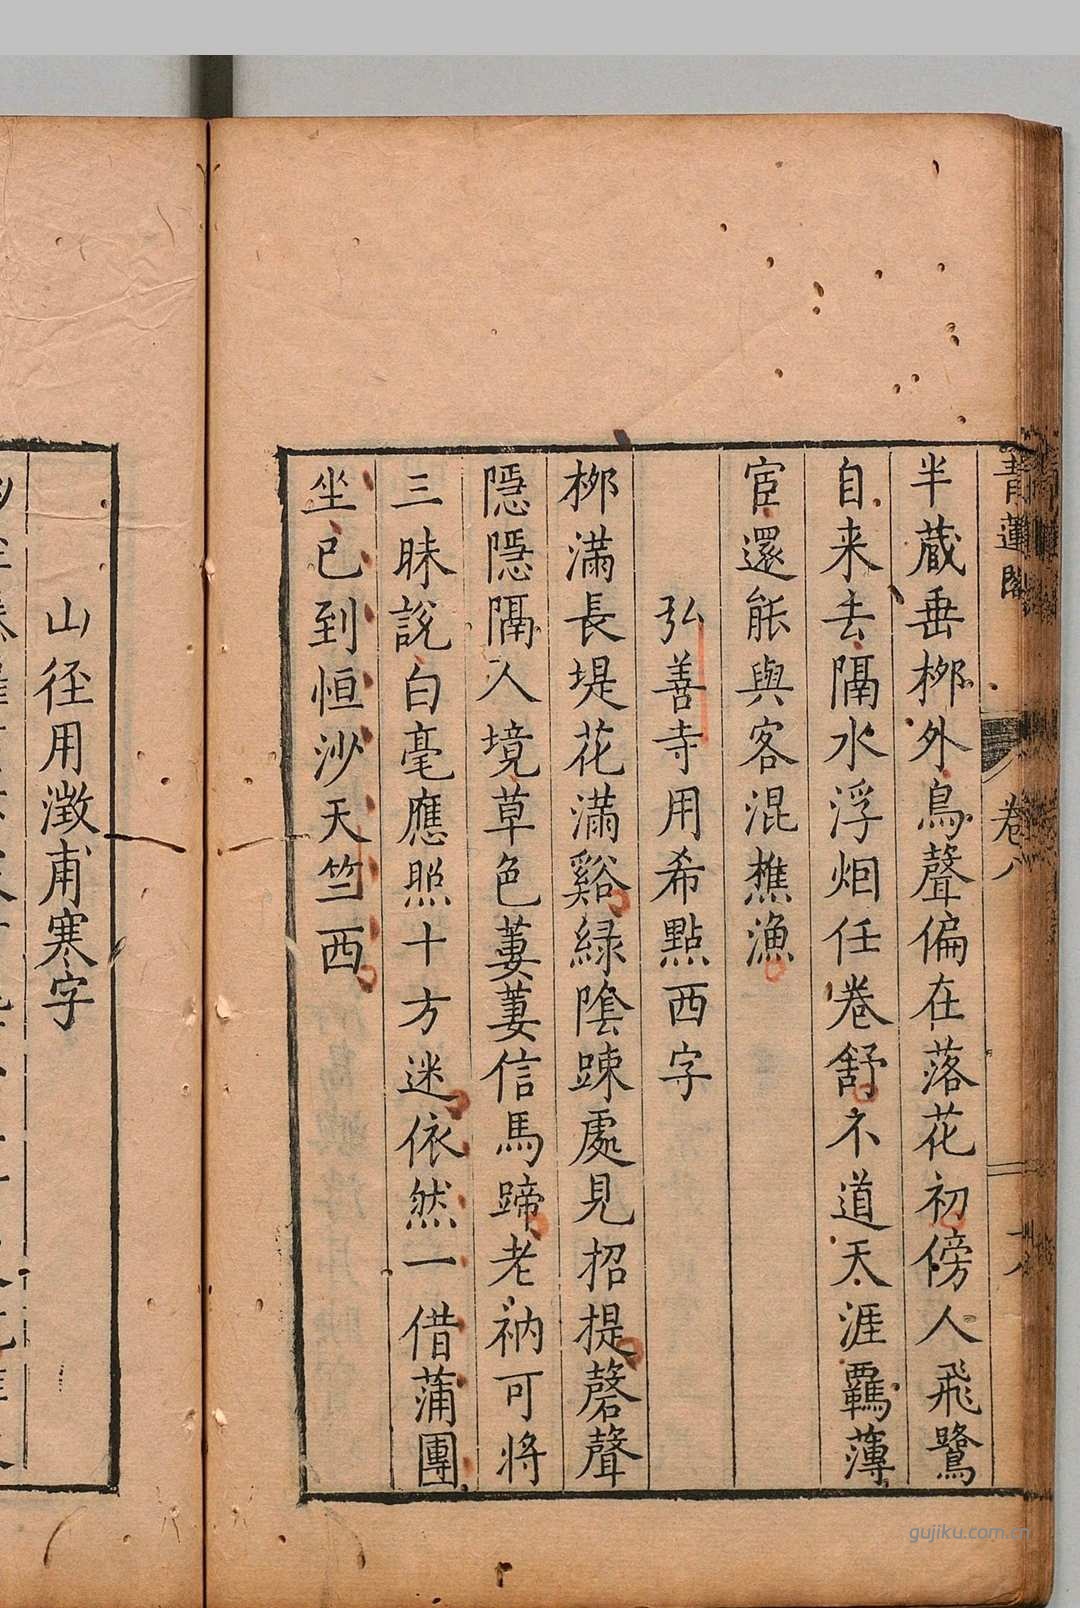 青蓮閣
卷八
半藏垂柳外鳥聲偏在落花初傍人飛鷺
自来去隔水浮烟任卷舒不道天涯羈薄
宦還能與客混樵漁
弘善寺用希點西字
柳滿長堤花滿谿綠陰踈處見招提磬聲
隱隱隔人境草色萋萋信馬蹄老衲可將
三昧說白毫應照十方迷依然一借蒲團
坐已到恒沙天竺西
山徑用澂甫寒字
gujiku.com.cn